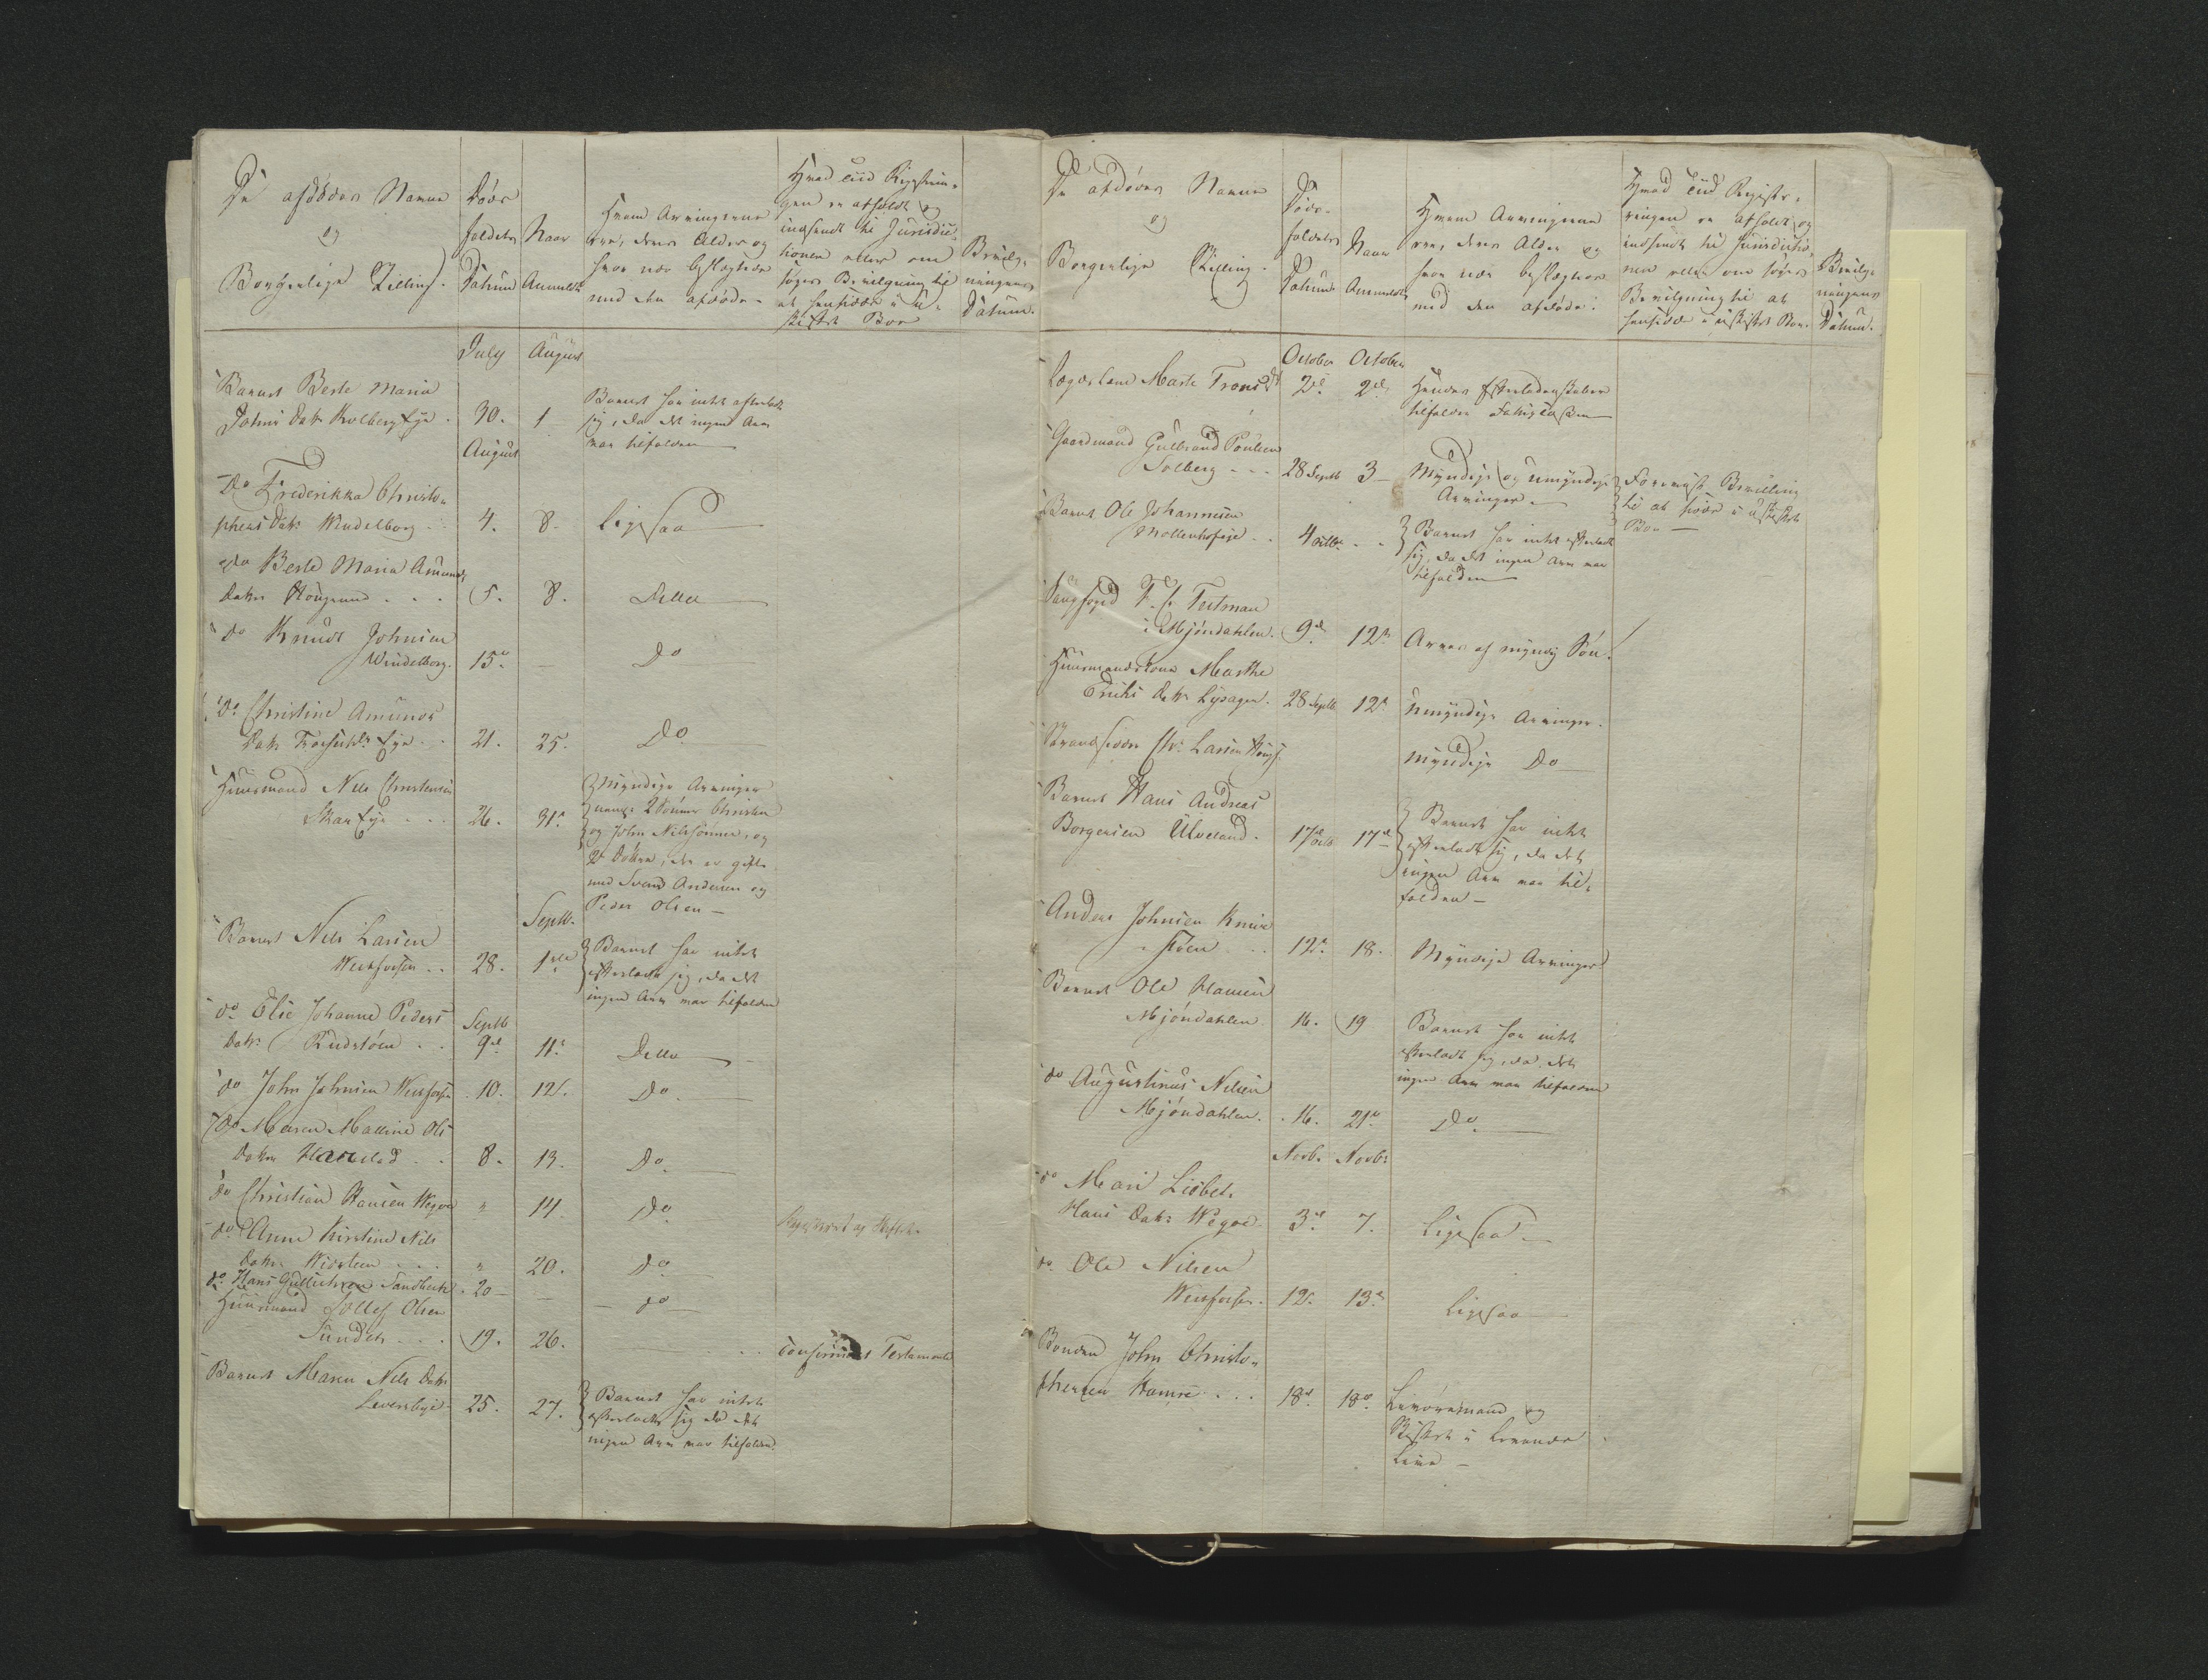 De afdödes Navne
og
Borgerlige Stilling.
Döds
faldets
Datum
Naar
Anmeldt
Hvem Arvingerne
ere, deres Alder og
hvor nær beslægtede
med den afdöde
Hvad Tiid Registrin-
gen er afholdt og
indsendt til Jurisdic-
tionen eller om
söges Bevilgning til
at hensidde i u-
skiftet Boe
Bevilg-
ningens
Datum.
July August
Barnet Berte Maria
Johns Datr Kolberg Eje . 30. 1
Barnet har intet efterladt
sig, da det ingen Arv
var tilfalden
August
Do Frederikka Christo-
phers Datr Windelborg . . 4. 8. Ligesaa
do Berte Maria Amunds
Datter Hougsund . . . 5. 8. Ditto
do Knud Johnsen
Windelborg. 15. — Do
do Christine Amunds
Datr Eje . . 21. 25. Do
Huusmand Nils Christensen
Skar Eje . . . 26. 31.
Myndige Arvinger
2 Sönner Christen
og John Nilssönner, og
2 Döttre, der er gifte
med Svend Andersen og
Peder Olsen —
Septb.
Barnet Nils Larsen
Westfossen . . 28. 1
Barnet har intet
efterladt sig, da det
ingen Arv var tilfalden
do Elie Johanne Peders Septb
Datr . . 9d 11. Ditto
do John Johnsen Westfossen . 10. 12. Do
do Maren Mallene Ols
Datter . . 8. 13. Do
do Christian Hansen " 14 Do
do Anne Kirstine Nils
Datr . . . " 20. Do
do Hans Sandbech . 20 — — do
Huusmand Tollef Olsen
Sundet . . . 19. 26. Confirmert Testamente
Barnet Maren Nils Datr
25. 27.
Barnet har intet
efterladt sig da det
ingen Arv var tilfalden.
De afdödes Navne
og
Borgerlige Stilling.
Döds-
faldets
Datum
Naar
Anmeldt
Hvem Arvingerne
ere, deres Alder og
hvor nær beslægtede
med den afdöde.
Hvad Tiid Registre-
ringen er afholdt og
indsendt til Jurisdictio-
nen eller om söges
Bevilgning til at
hensidde i uskiftet Boe.
Bevilg-
ningens
Datum.
October October
Marte 2de 2de Hendes Efterladenskaber
tilfalder Fattigkassen
Gaardmand Gulbrand Poulsen
Solberg - - - 28 Septb 3 — Myndige og umyndige
Arvinger.
Bevilling
til at sidde i uskiftet
Boe —
Barnet Ole Johannesen
Mollenhofeje . . 4 octb. . . Barnet har intet efterladt
sig, da det ingen Arv var
tilfalden
Saugfoged F. C. Testman
i Mjöndahlen. 9de 12te Arves af myndig Sön.
Huusmandskone Marthe
Erichs Datr Lysager. 28 Septb 12te Umyndige Arvinger.
Chr. Larsen
Myndige Do
Barnet Hans Andreas
Borgersen Ulveland. 17de octb 17de
Barnet har intet
efterladt sig, da det
ingen Arv var til-
falden —
Anders Johnsen Knive
. . 12te 18. Myndige Arvinger
Barnet Ole Hansen
Mjöndahlen 16. 19 Barnet har intet
efterladt sig, da det
ingen Arv var tilfalden
do Augustinus Nilsen
Mjöndahlen. . 16. 21. Do
Novbr Novbr
do Mari Lisbet
Hans Datr 3de 7. Ligesaa
do Ole Nilsen
Westfossen . 12. 13. Ligesaa
Bonden John Christo-
phersen . . . 18de 18de
og
Skiftet i Levende
Live —